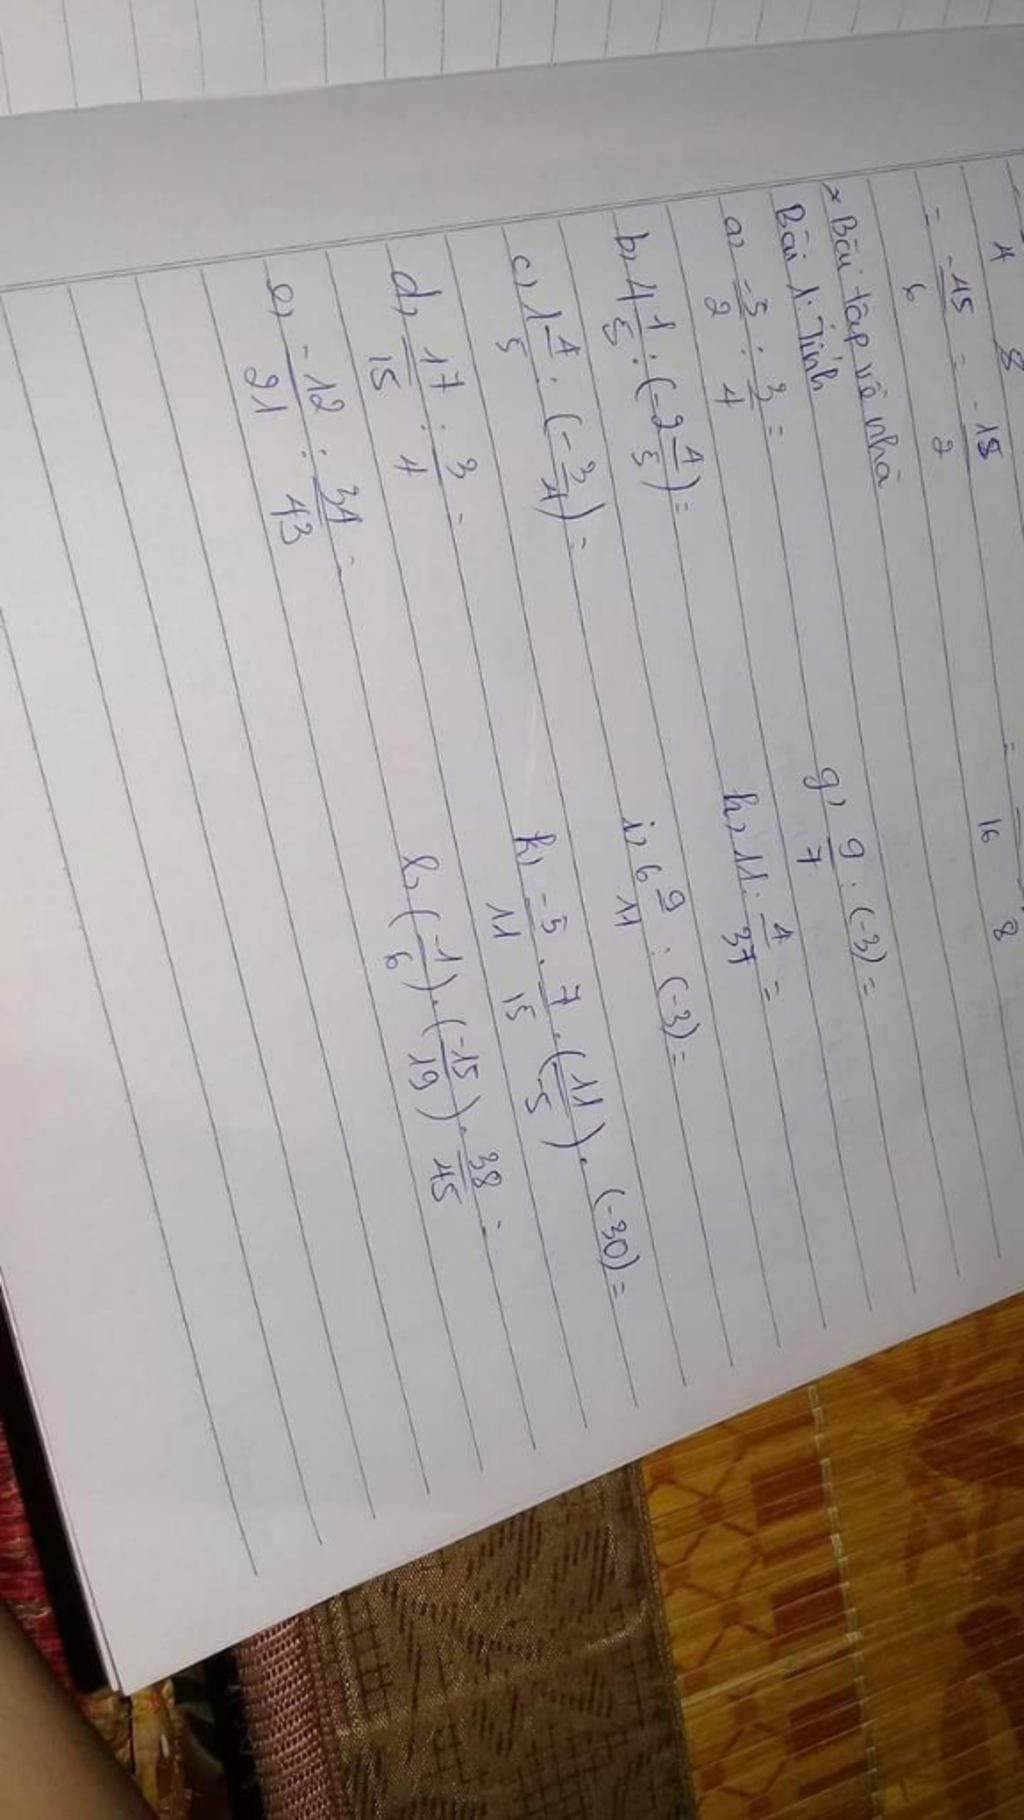 4 8 = 16 8
= -45/6 = -15/2
* Bài tập về nhà
Bài 1: Tính
a, -5/2 : 3/4 =
b, 4 1/5 : (-2 4/5) =
c, 1 4/5 : (-3/4) =
d, 17/15 : 3/4 =
e, -12/21 : 34/43 =
g, 9/7 : (-3) =
h, 11 : 4/37 =
i, 6 9/11 : (-3) =
k, -5/11 . 7/15 . (11/-5) . (-30) =
l, (-1/6) . (-15/19) . 38/45 =